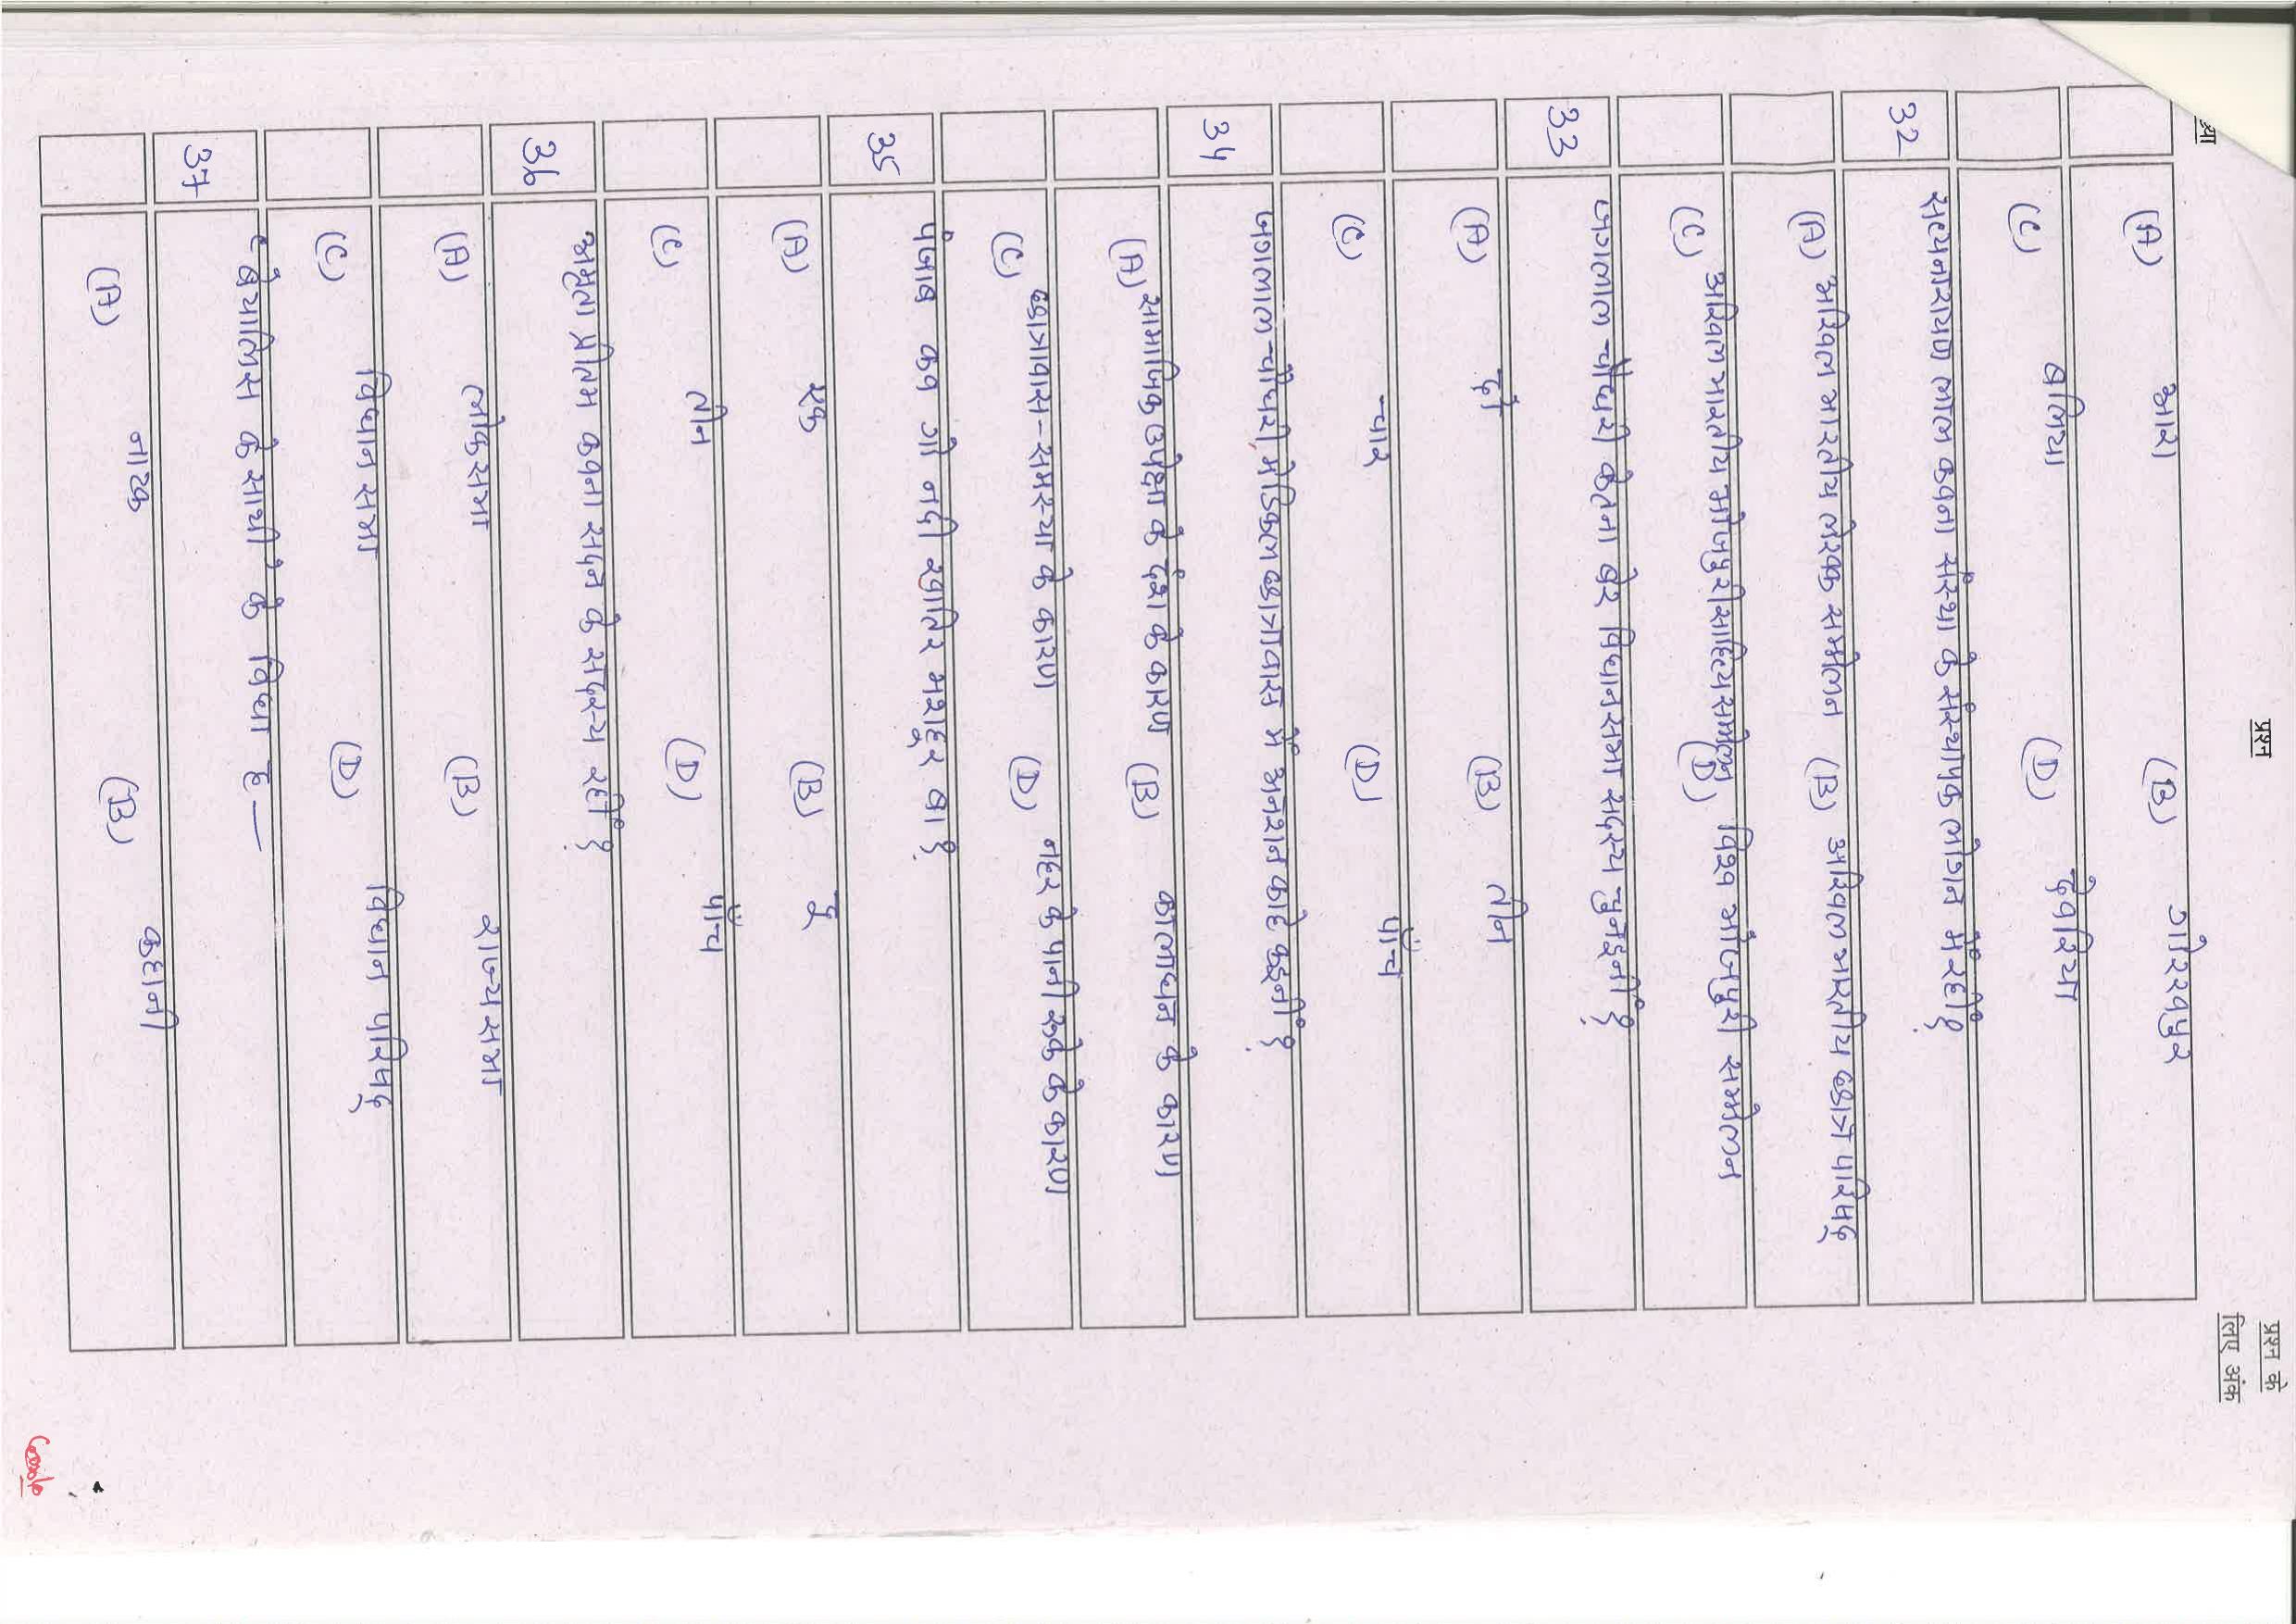 प्रश्न
प्रश्न के
लिए अंक
(A) आरा (B) गोरखपुर
(C) बलिया (D) देवरिया
32 सत्यनारायण लाल कवना संस्था के संस्थापक लोगन में रहीं?
(A) अखिल भारतीय लेखक सम्मेलन (B) अखिल भारतीय छात्र परिषद्
(C) अखिल भारतीय भोजपुरी साहित्य सम्मेलन (D) विश्व भोजपुरी सम्मेलन
33 जगलाल चौधरी केतना बेर विधानसभा सदस्य चुनइनीं?
(A) दो (B) तीन
(C) चार (D) पाँच
34 जगलाल चौधरी मेडिकल छात्रावास में अनशन काहे कइनीं?
(A) सामाजिक उपेक्षा के दंश के कारण (B) कालाधन के कारण
(C) छात्रावास-समस्या के कारण (D) नहर के पानी रूके के कारण
35 पंजाब कव गो नदी खातिर मशहूर बा?
(A) एक (B) दू
(C) तीन (D) पाँच
36 अमृता प्रीतम कवना सदन के सदस्य रहीं?
(A) लोकसभा (B) राज्यसभा
(C) विधान सभा (D) विधान परिषद्
37 'बेयालिस के साथी' के विधा ह—
(A) नाटक (B) कहानी